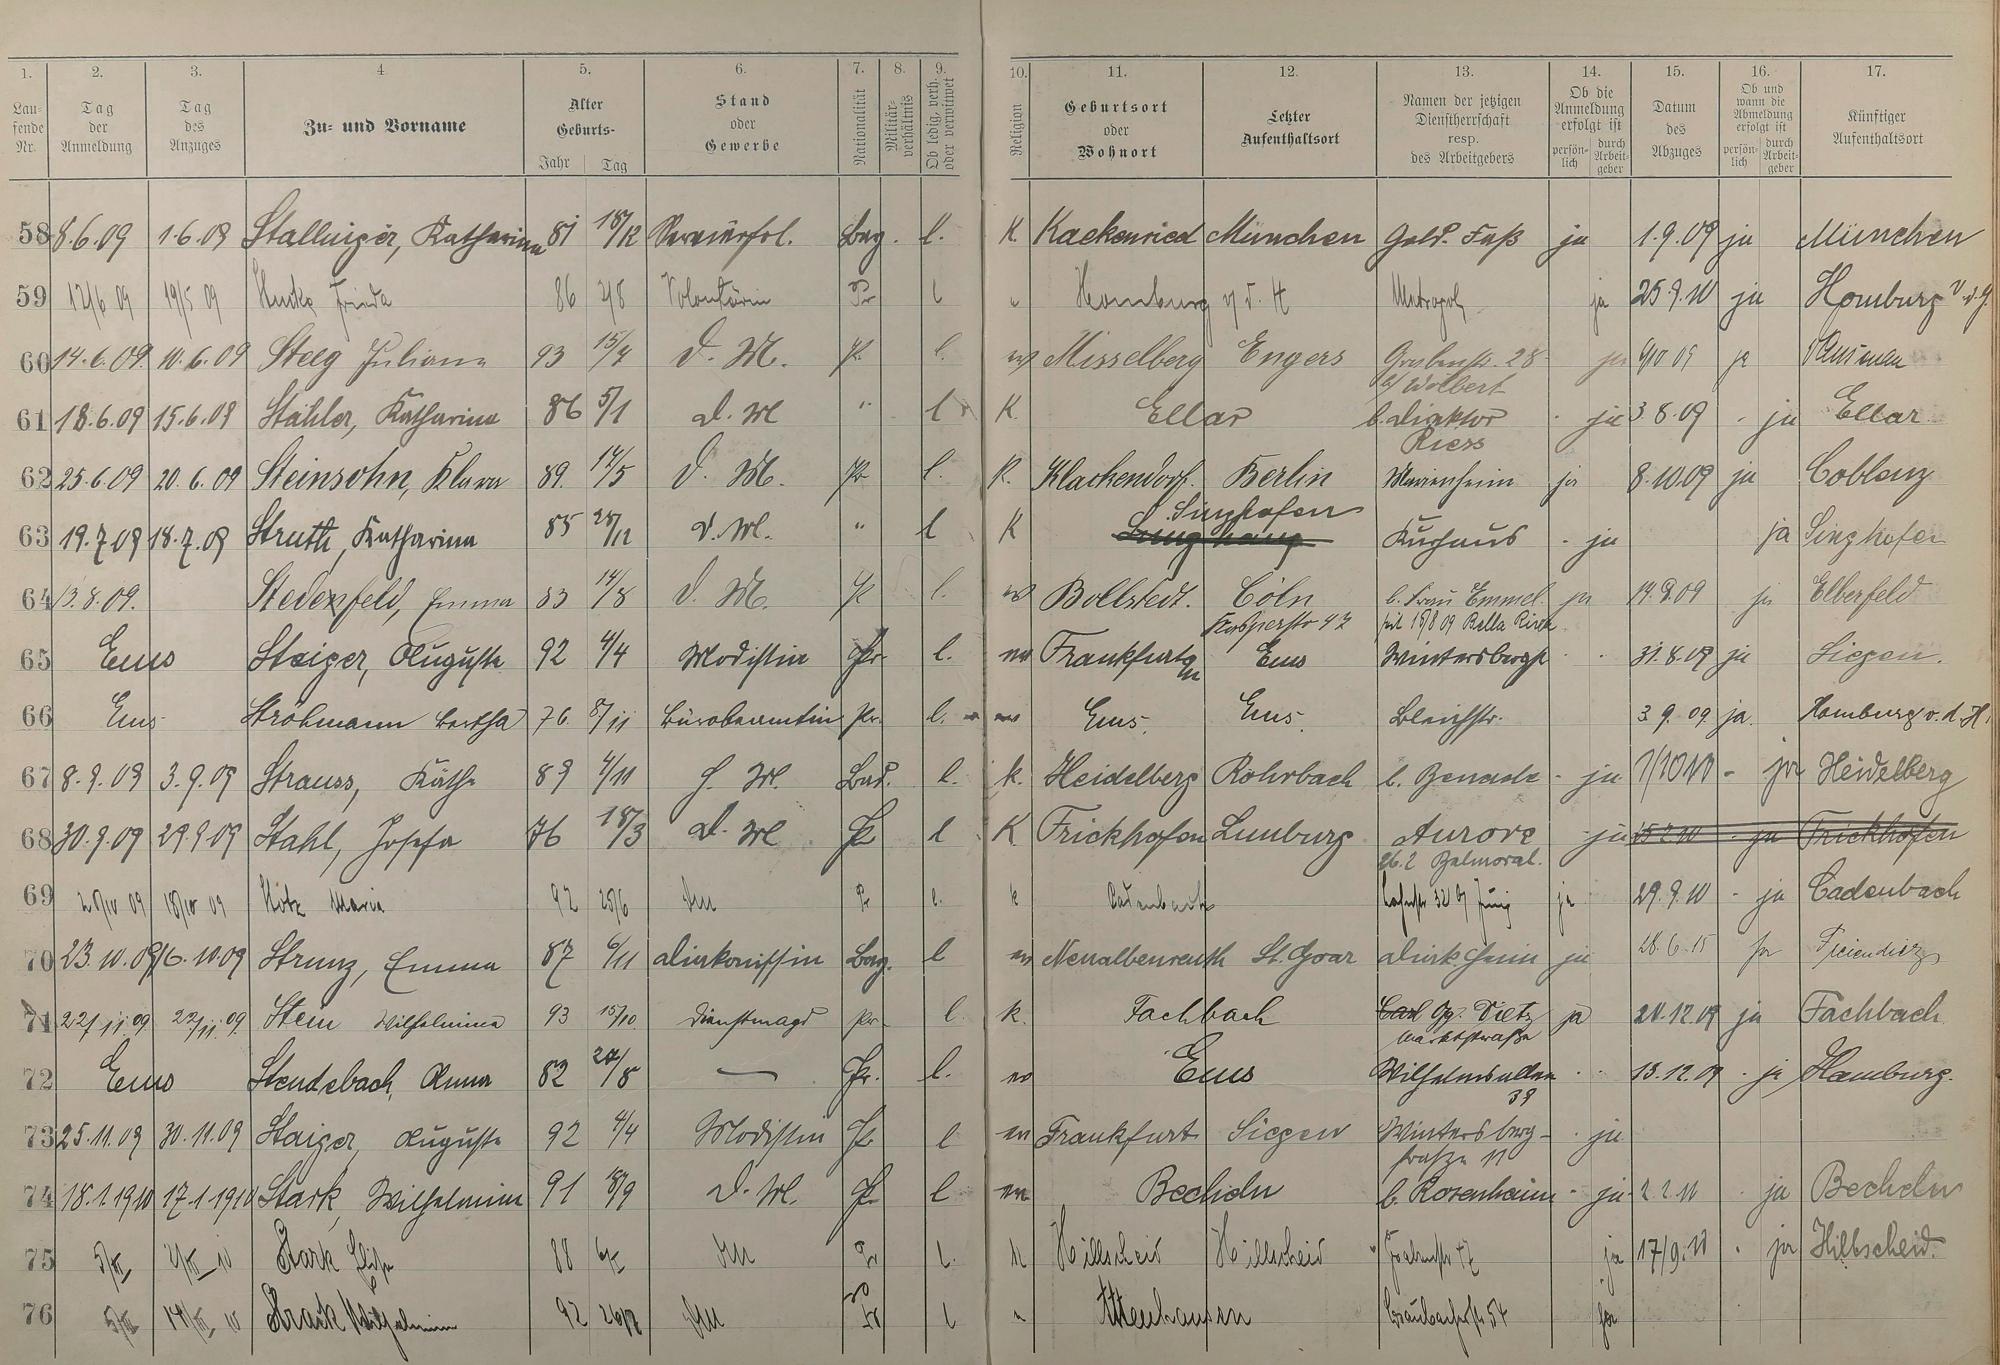 1. 2. 3. 4. 5. 6. 7. 8. 9. 10. 11. 12. 13. 14. 15. 16. 17.
Lau-
fende
Nr.
Tag
der
Anmeldung
Tag
des
Anzuges
Zu- und Vorname
Alter
Geburts-
Jahr Tag
Stand
oder
Gewerbe
Nationalität
Militär-
verhältnis
Ob ledig, verh.
oder verwitwet
Religion
Geburtsort
oder
Wohnort
Letzter
Aufenthaltsort
Namen der jetzigen
Dienstherrschaft
resp.
des Arbeitgebers
Ob die
Anmeldung
erfolgt ist
persön-
lich
durch
Arbeit-
geber
Datum
des
Abzuges
Ob und
wann die
Abmeldung
erfolgt ist
persön-
lich
durch
Arbeit-
geber
Künftiger
Aufenthaltsort
58 8.6.09 1.6.09 Stallinger, Katharina 81 18/12 Bay. l. K. München Gold. Faß ja 1.9.09 ja München
59 12/6 09 19/5 09 Frieda 86 2/8 Volontärin Pr l " Homburg v. d. H Metropol ja 25.9.10 ja Homburg v. d. H.
60 14.6.09. 10.6.09 Steeg Juliane 93 15/4 D. M. Pr l. ev Misselberg Engers Grabenstr. 28 ja 9/10 09 ja
b/ Wolbert
61 18.6.09 15.6.09 Stähler, Katharina 86 5/1 D. M " l K. Ellar b. Direktor - ja 3.8.09 - ja Ellar
Riess
62 25.6.09 20.6.09 Steinsohn, Klara 89. 17/5 D. M. Pr l. K. Klackendorf. Berlin Marienheim ja 8.10.09 ja Coblenz
Singhofen
63 19.7.09 18.7.09 Struth, Katharina 85 28/12 D. M. " l K Kurhaus - ja ja Singhofen
64 13.8.09. Stedenfeld, Emma 83 14/8 D. M. Pr l. ev Bollstedt. Cöln b. Frau Emmel. ja 19.9.09 ja Elberfeld
seit 15/8 09 Bella Riva
65 Ems Staiger, Auguste 92 4/4 Modistin Pr. l. ev Frankfurt Ems Wintersbergstr 31.8.09 ja Siegen.
66 Ems Ströhmann Bertha 76 8/11 Bürobeamtin Pr. l. ev Ems. Ems. Bleichstr. 3.9.09 ja. Homburg v. d. H.
67 8.9.09 3.9.09 Strauss, Käthe 89 4/11 H. M. Bad. l. k. Heidelberg Rohrbach b. Benade - ja 1/10 10 - ja Heidelberg
68 30.9.09 29.9.09 Stahl, Josefa 76 18/3 D. M Pr l K. Frickhofen Limburg Aurora - ja 15.2.10 - ja Frickhofen
26.2 Balmoral.
69 18/10 09 Maria 92 25/6 Pr l. k Cadenbach ja 29.9.10 - ja Cadenbach
70 23.10.09 16.10.09 Strunz, Emma 87 6/11 Diakonissin Bay. l ev Neualbenreuth St. Goar Diak. Heim ja 28.6.15 ja Freiendiez
71 22/11.09 22/11.09. Stein Wilhelmine 93 15/10 Dienstmagd Pr. l. k. Fachbach Carl Og. Dietz ja 20.12.09 ja Fachbach
Marktstraße
72 Ems Stendebach, Anna 82 24/8 — Pr. l. ev Ems Wilhelmsallee 13.12.09 - ja Hamburg.
39
73 25.11.09 30.11.09 Staiger, Auguste 92 4/4 Modistin Pr l ev Frankfurt Siegen Wintersberg- - ja
straße 11
74 18.1.1910 17.1.1910 Stark, Wilhelmine 91 18/9 D. M. Pr l ev Becheln b. Rosenheim - ja 2.2.10 ja Becheln
75 Stark Elise 88 Pr l. Hillscheid Hillscheid ja 17/9.10 - ja Hillscheid.
76 Strack Wilhelmine 92 26/7 Pr l " Attenhausen Braubacherstr. 54 ja